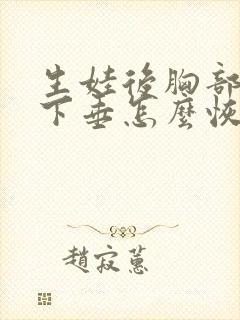 生娃後胸部
下垂怎麼恢
趙寂蕙